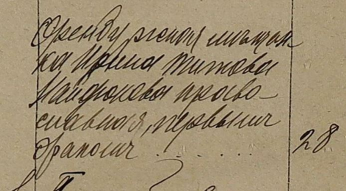 Оренбургская мѣщан-
ка Ирина Титова
Найденова право-
славная, первымъ
бракомъ . . . . . . 28
II